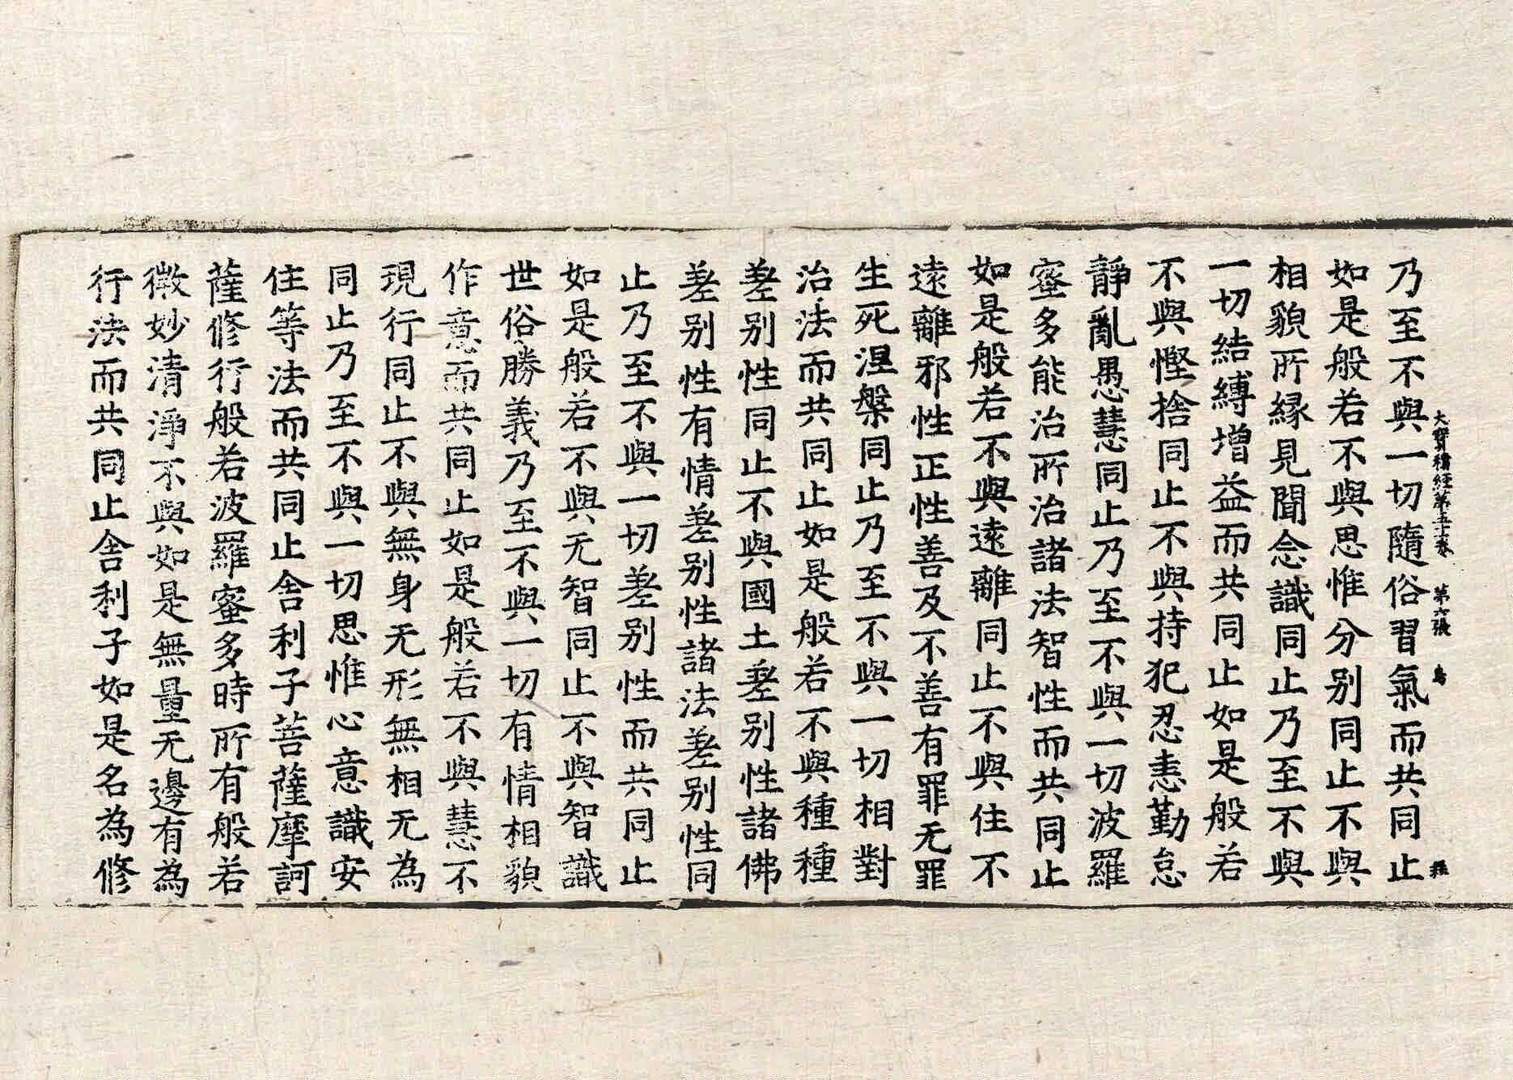 大寶積經第五十卷 第六張 鳥
乃至不與一切隨俗習氣而共同止
如是般若不與思惟分別同止不與
相貌所緣見聞念識同止乃至不與
一切結縛增益而共同止如是般若
不與慳捨同止不與持犯忍恚勤怠
靜亂愚慧同止乃至不與一切波羅
蜜多能治所治諸法智性而共同止
如是般若不與遠離同止不與住不
遠離邪性正性善及不善有罪无罪
生死涅槃同止乃至不與一切相對
治法而共同止如是般若不與種種
差別性同止不與國土差別性諸佛
差別性有情差別性諸法差別性同
止乃至不與一切差別性而共同止
如是般若不與无智同止不與智識
世俗勝義乃至不與一切有情相貌
作意而共同止如是般若不與慧不
現行同止不與無身无形無相无為
同止乃至不與一切思惟心意識安
住等法而共同止舍利子菩薩摩訶
薩修行般若波羅蜜多時所有般若
微妙清淨不與如是無量无邊有為
行法而共同止舍利子如是名為修